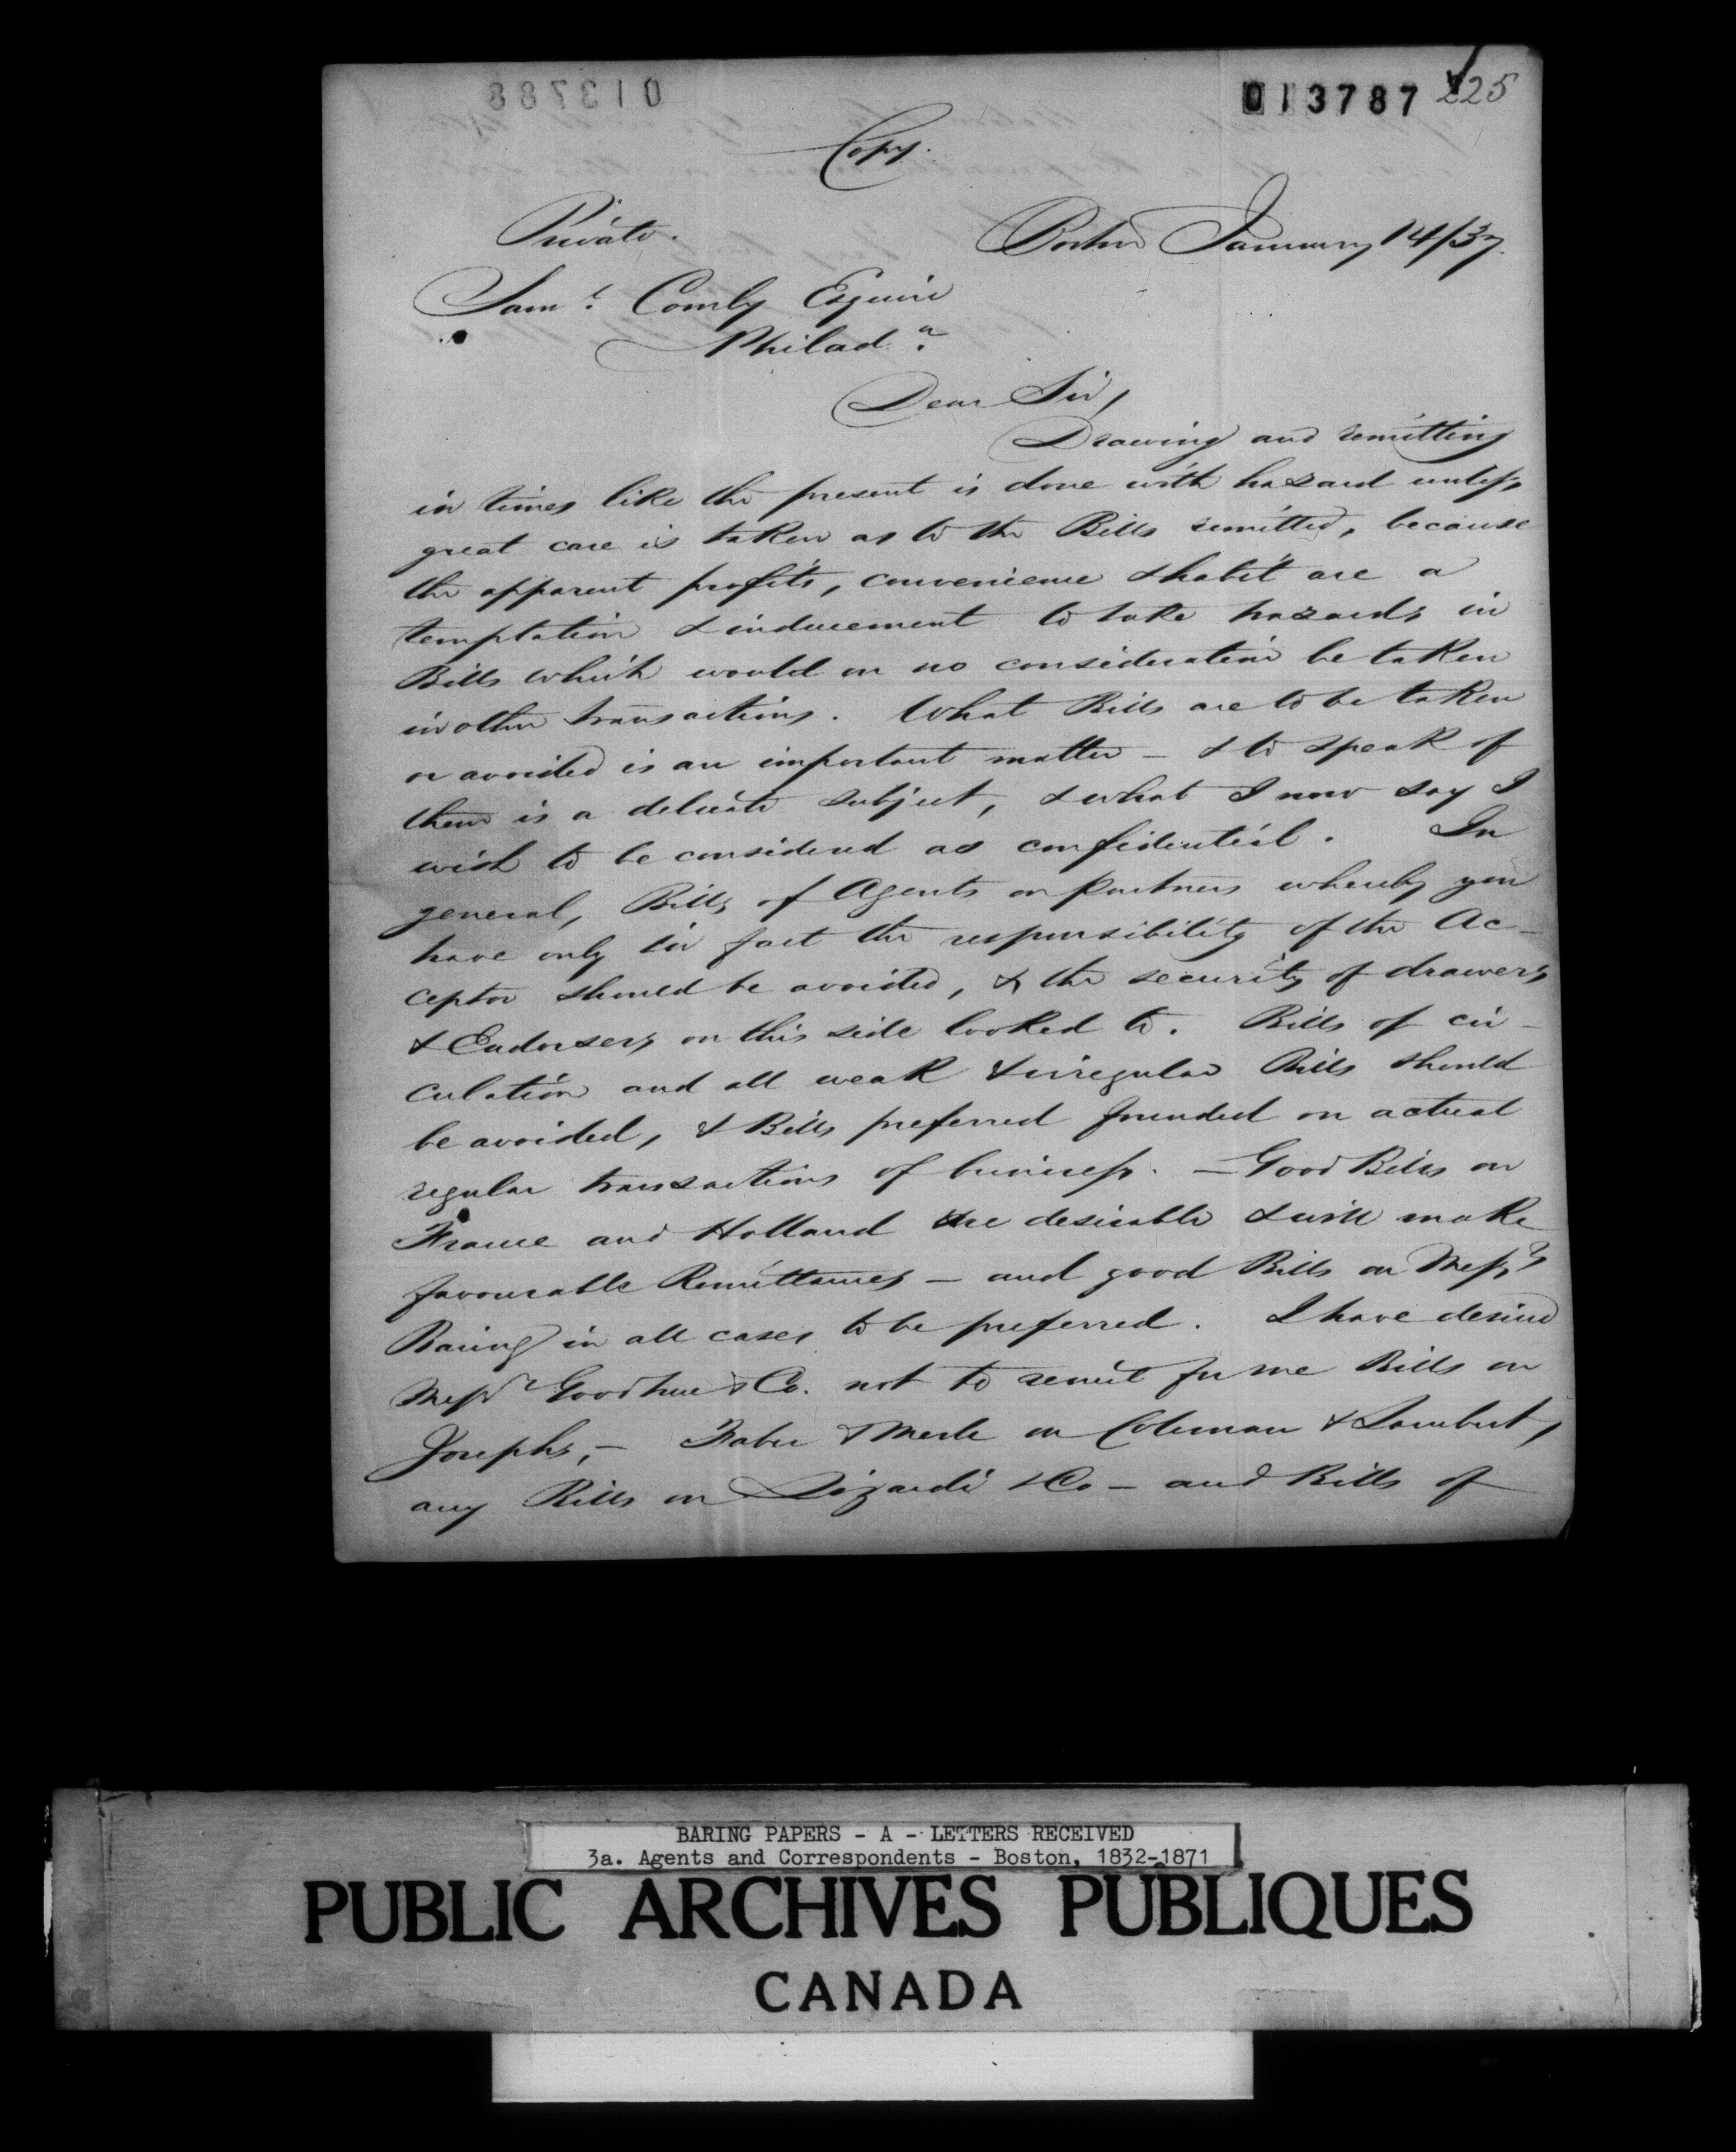 013788
013787 225
Copy.
Private. Boston January 14/37.
Sam.l Comly Esquire
Philad.a
Dear Sir,
Drawing and remitting
in times like the present is done with hazard unless
great care is taken as to the Bills remitted, because
the apparent profits, convenience & habit are a
temptation & inducement to take hazards in
Bills which would on no consideration be taken
in other transactions. What Bills are to be taken
or avoided is an important matter – & to speak of
them is a delicate subject, & what I now say I
wish to be considered as confidential. In
general, Bills of Agents or partners whereby you
have only in fact the responsibility of the Ac-
ceptor should be avoided, & the security of drawers
& Endorsers on this side looked to. Bills of cir-
culation and all weak & irregular Bills should
be avoided, & Bills preferred founded on actual
regular transactions of business. – Good Bills on
France and Holland are desirable & will make
favourable Remittances – and good Bills on Mess.rs
Baring in all cases to be preferred. I have desired
Mess.rs Goodhue & Co. not to remit for me Bills on
Josephs, – Faber & Merle on Coleman & Lambert,
any Bills on Lizardi & Co – and Bills of
BARING PAPERS - A - LETTERS RECEIVED
3a. Agents and Correspondents - Boston, 1832-1871
PUBLIC ARCHIVES PUBLIQUES
CANADA